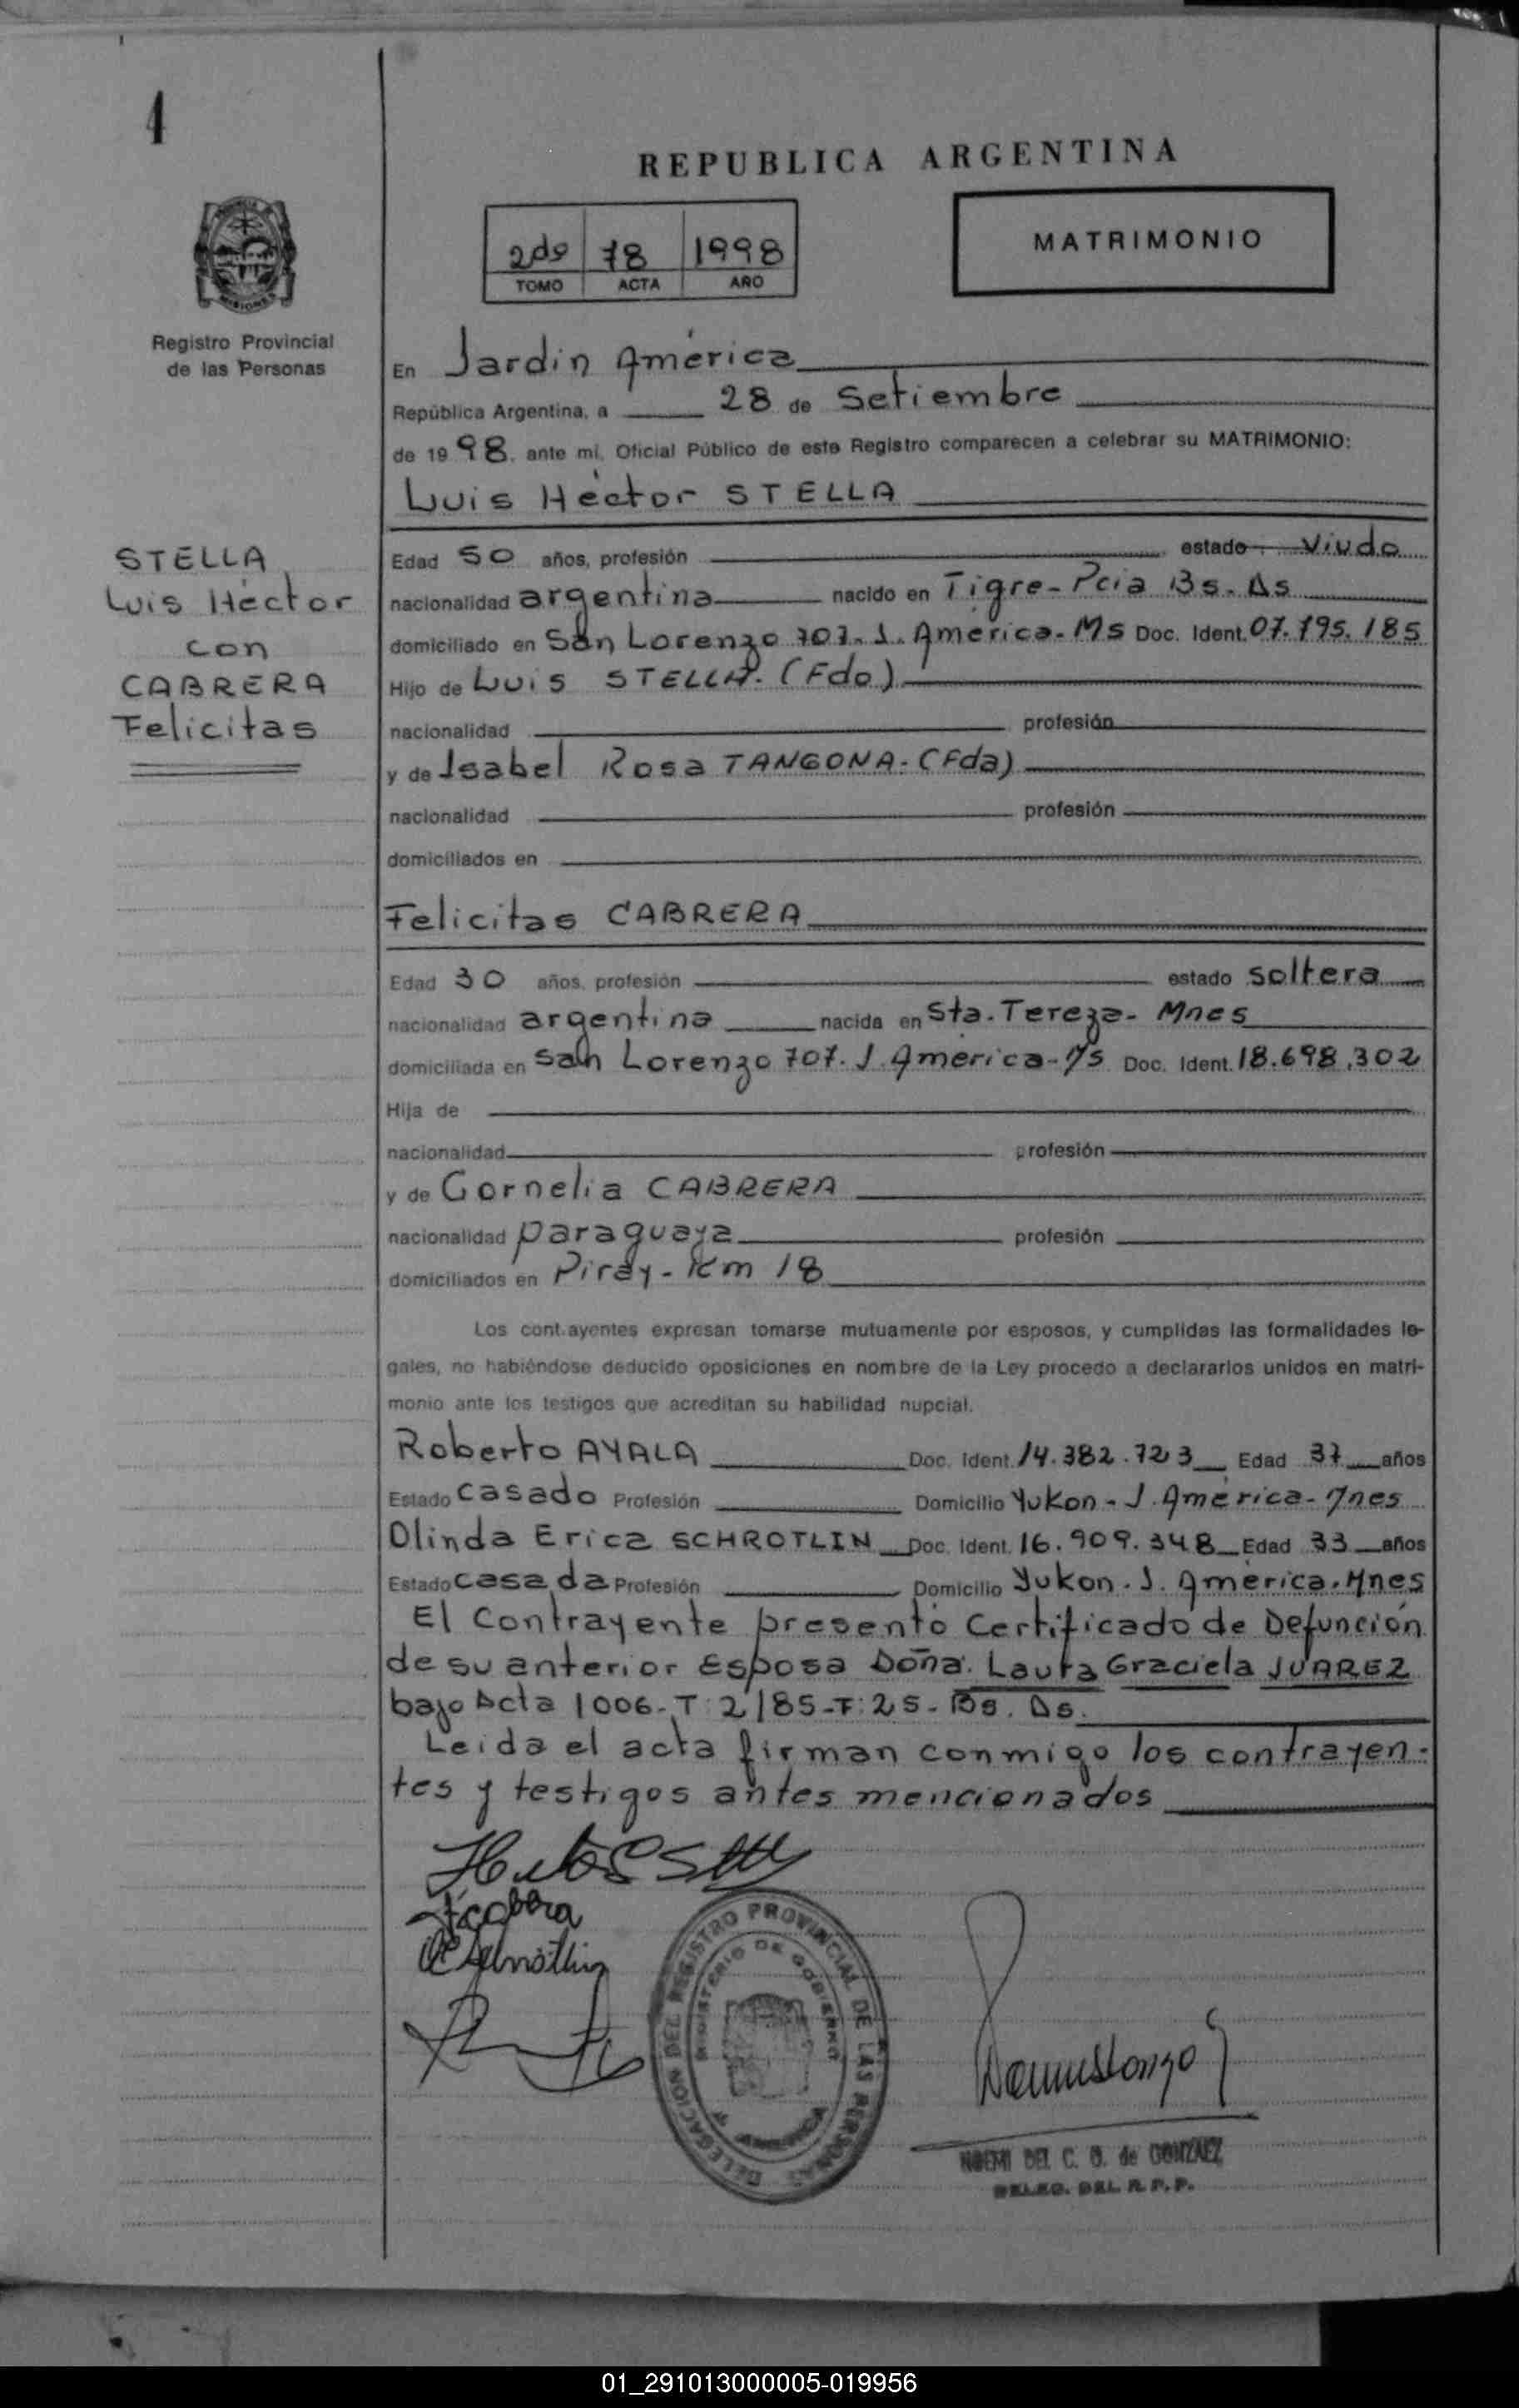 4
REPUBLICA ARGENTINA
2do 78 1998
TOMO ACTA AÑO
MATRIMONIO
Registro Provincial
de las Personas
En Jardin América
República Argentina, a 28 de Setiembre
de 1998. ante mí, Oficial Público de este Registro comparecen a celebrar su MATRIMONIO:
Luis Héctor STELLA
STELLA
Luis Héctor
con
CABRERA
Felicitas
Edad 50 años, profesión estado Viudo
nacionalidad argentina nacido en Tigre - Pcia Bs. As
domiciliado en San Lorenzo 707. J. América - Ms Doc. Ident. 07.795.185
Hijo de Luis STELLA. (Fdo)
nacionalidad profesión
y de Isabel Rosa TANGONA. (Fda)
nacionalidad profesión
domiciliados en
Felicitas CABRERA
Edad 30 años, profesión estado soltera
nacionalidad argentina nacida en Sta. Tereza - Mnes
domiciliada en San Lorenzo 707. J. América - Ms Doc. Ident. 18.698.302
Hija de
nacionalidad profesión
y de Cornelia CABRERA
nacionalidad paraguaya profesión
domiciliados en Piray - Km 18
Los contrayentes expresan tomarse mutuamente por esposos, y cumplidas las formalidades le-
gales, no habiéndose deducido oposiciones en nombre de la Ley procedo a declararlos unidos en matri-
monio ante los testigos que acreditan su habilidad nupcial.
Roberto AYALA Doc. Ident. 14.382.723 Edad 37 años
Estado casado Profesión Domicilio Yukon - J. América - Mnes
Olinda Erica SCHROTLIN Doc. Ident. 16.909.348 Edad 33 años
Estado casada Profesión Domicilio Yukon. J. América. Mnes
El Contrayente presentó Certificado de Defunción
de su anterior Esposa Doña. Laura Graciela JUAREZ
bajo Acta 1006 - T: 2/85 - F: 25 - Bs. As.
Leida el acta firman conmigo los contrayen-
tes y testigos antes mencionados
DELEGACION DEL REGISTRO PROVINCIAL DE LAS PERSONAS
MINISTERIO DE GOBIERNO
NOEMI DEL C. D. de GONZALEZ
DELEG. DEL R. P. P.
01_291013000005-019956